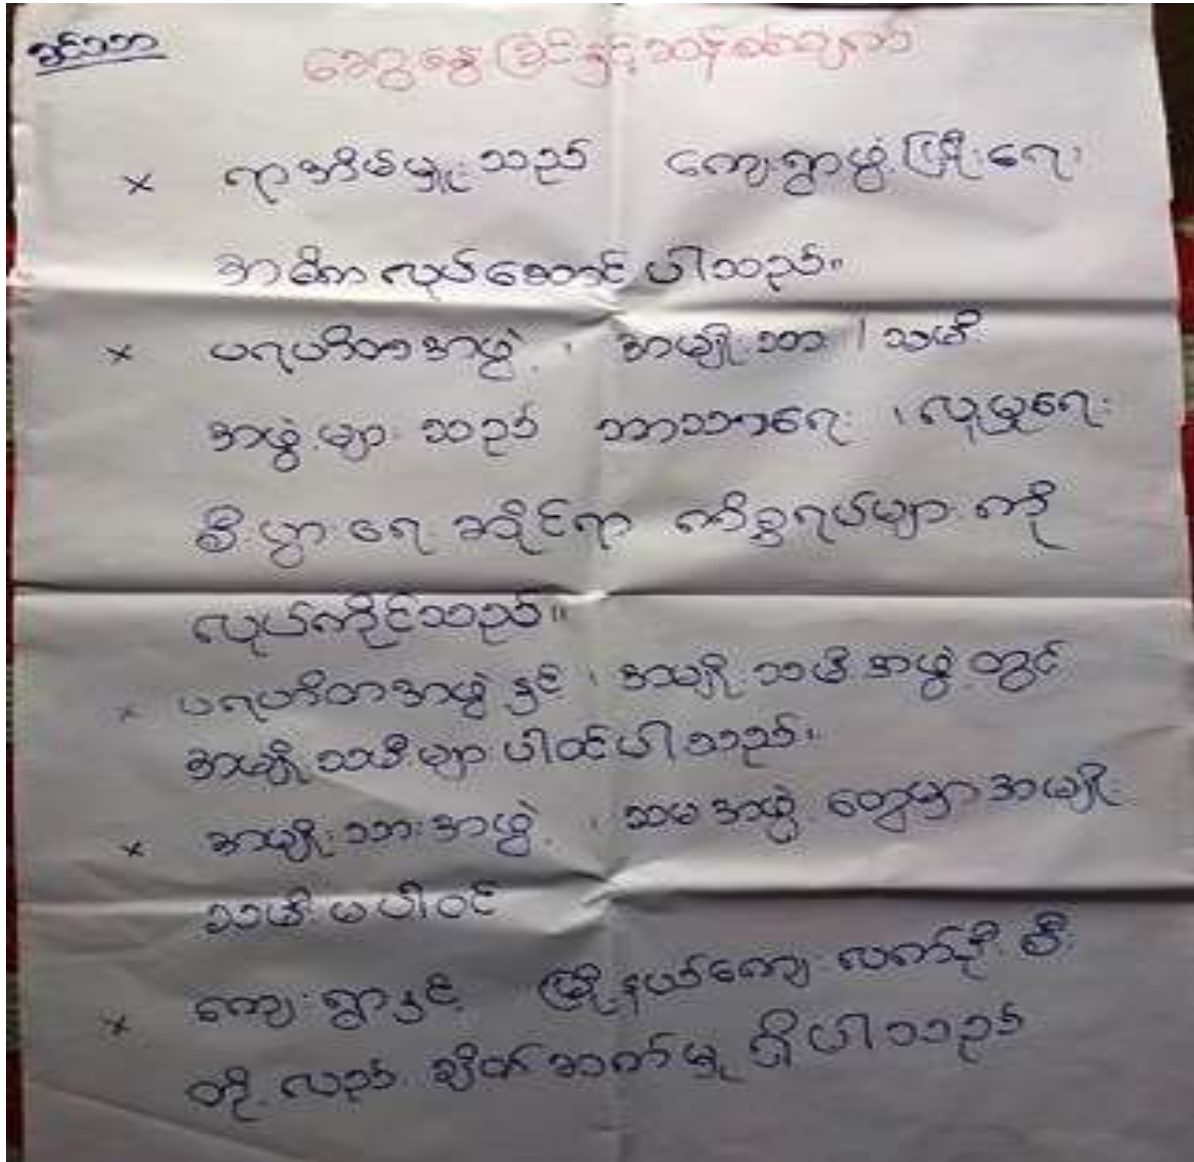 ခင်သာ
ဆွေးနွေးခြင်းနှင့်ဆန်းစစ်ချက်
× ရာအိမ်မှူးသည် ကျေးရွာဖွံ့ဖြိုးရေး
အဓိက လုပ်ဆောင်ပါသည်။
× ပရဟိတအဖွဲ့၊ အမျိုးသား / သမီး
အဖွဲ့များသည် ဘာသာရေး၊ လူမှုရေး
စီးပွားရေး ဆိုင်ရာ ကိစ္စရပ်များကို
လုပ်ကိုင်သည်။
× ပရဟိတအဖွဲ့နှင့်၊ အမျိုးသမီးအဖွဲ့တွင်
အမျိုးသမီးများ ပါဝင်ပါသည်။
× အမျိုးသားအဖွဲ့၊ သမအဖွဲ့တွေမှာ အမျိုး
သမီး မပါဝင်
× ကျေးရွာနှင့် မြို့နယ်ကျေးလက်ဦးစီး
တို့လည်း ချိတ်ဆက်မှု ရှိပါသည်